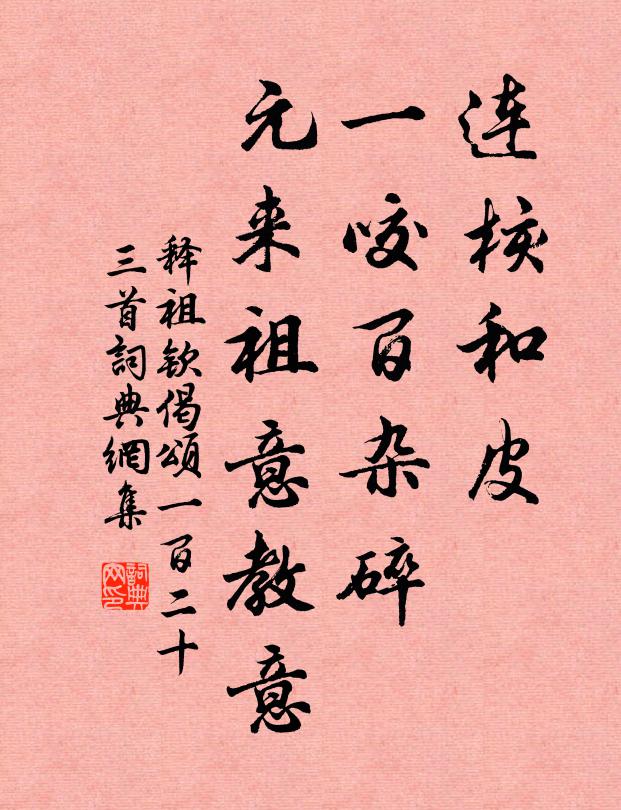 连核和皮
一咬百杂碎
元来祖意教意
释祖钦偈頌一百二十
三首詞典網集
詞典
网印